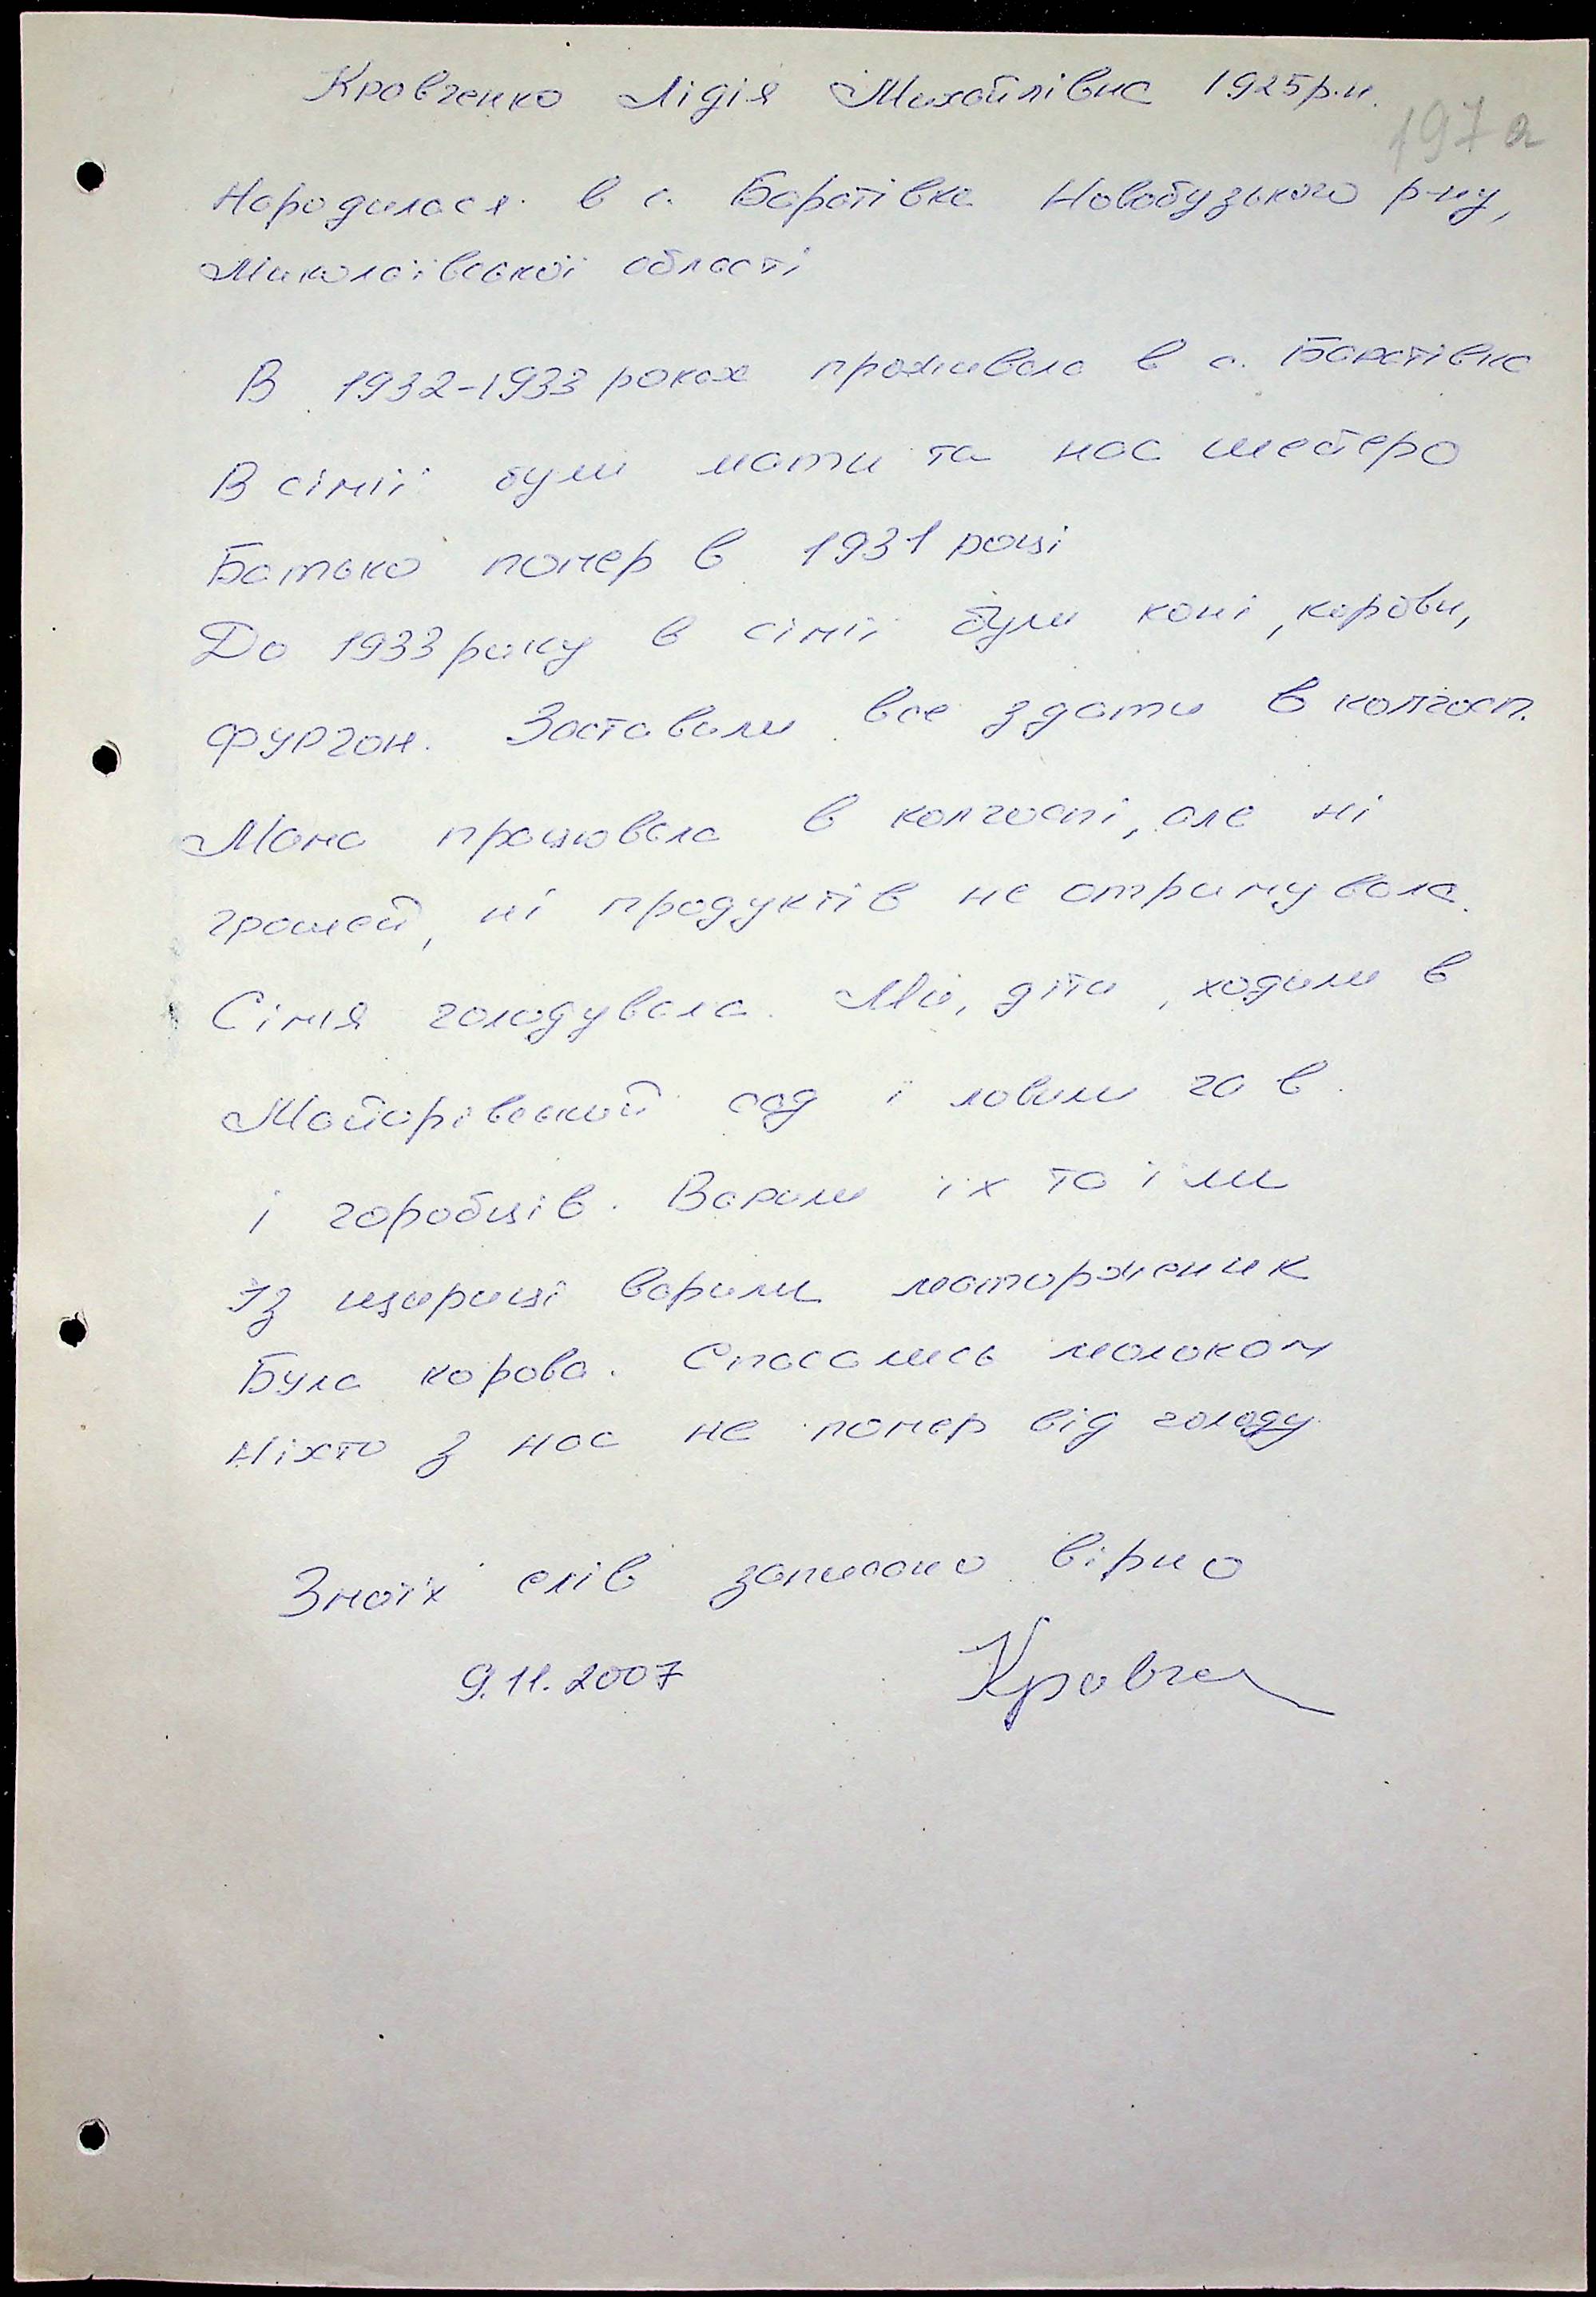 Кравченко Лідія Михайлівна 1925р.н.
197а
Народилася в с. Баратівка Новобузького р-ну,
Миколаївської області
В 1932-1933 роках проживала в с. Баратівка
В сімії були мати та нас шестеро
Батько помер в 1931 році
До 1933 року в сімії були коні, корови,
фургон. Заставили все здати в колгосп.
Мама працювала в колгоспі, але ні
грошей, ні продуктів не отримувала.
Сімія голодувала. Ми, діти, ходили в
Майорівський сад і ловили гав
і горобців. Варили їх та їли
Із щириці варили маторженик
Була корова. Спасались молоком
Ніхто з нас не помер від голоду
З моїх слів записано вірно
9.11.2007 Кравчен